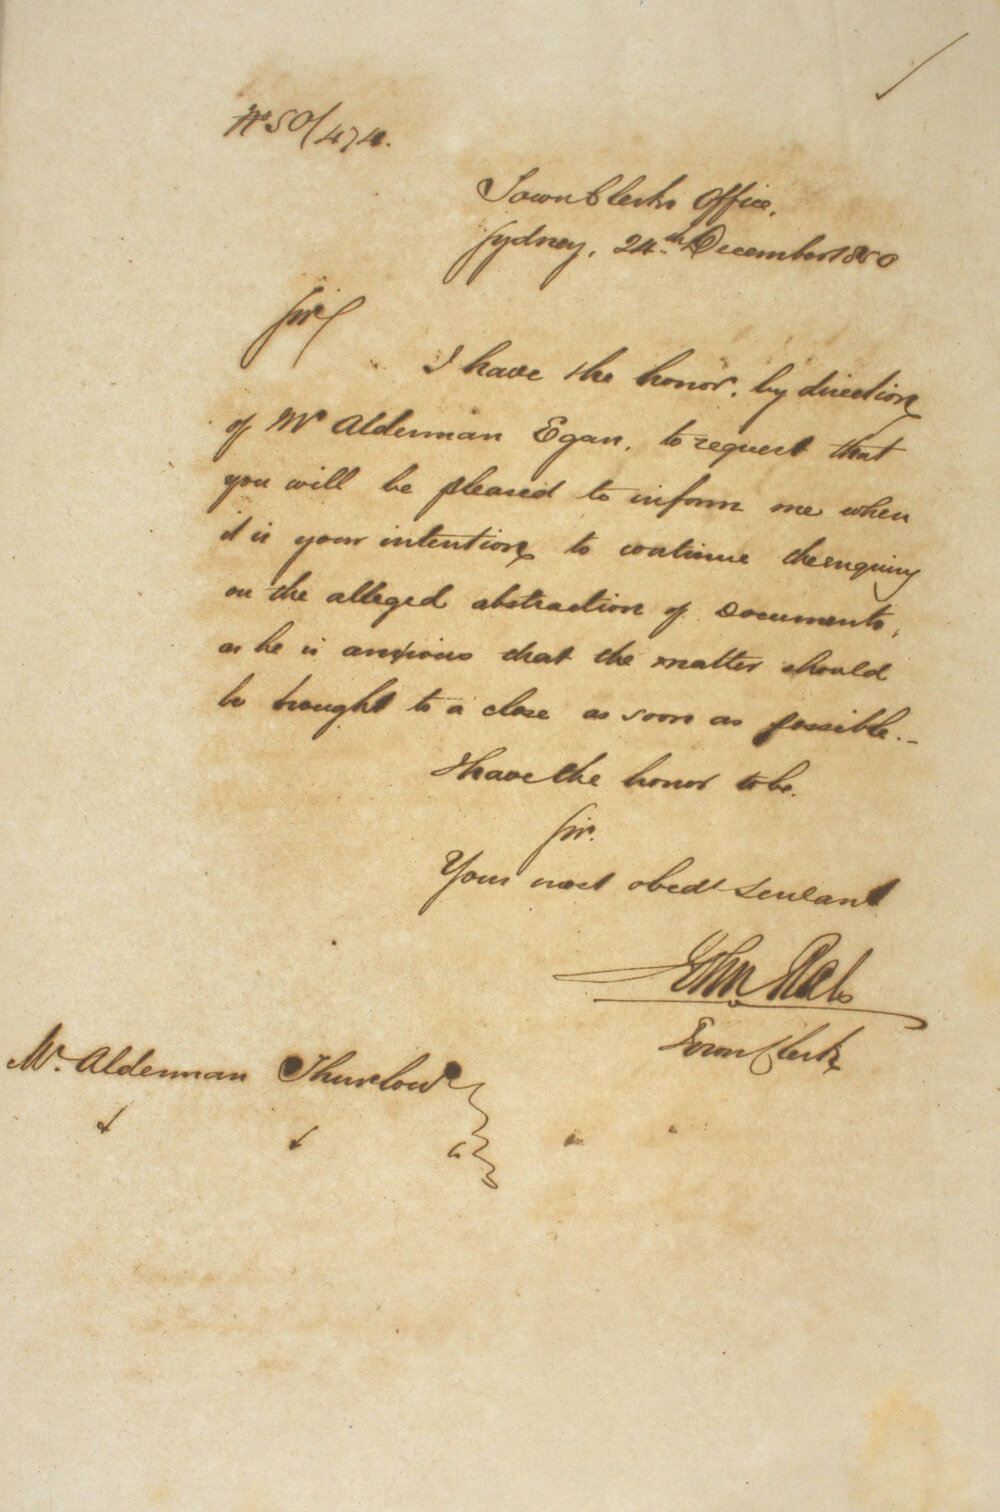 No 50/474.
Town Clerks Office,
Sydney, 24th December 1850
Sir
I have the honor, by direction
of Mr Alderman Egan, to request that
you will be pleased to inform me when
it is your intention to continue the enquiry
on the alleged abstraction of Documents,
as he is anxious that the matter should
be brought to a close as soon as possible.-
I have the honor to be.
Sir.
Your most obedt Servant
John Rae
Town Clerk
Mr. Alderman Thurlow